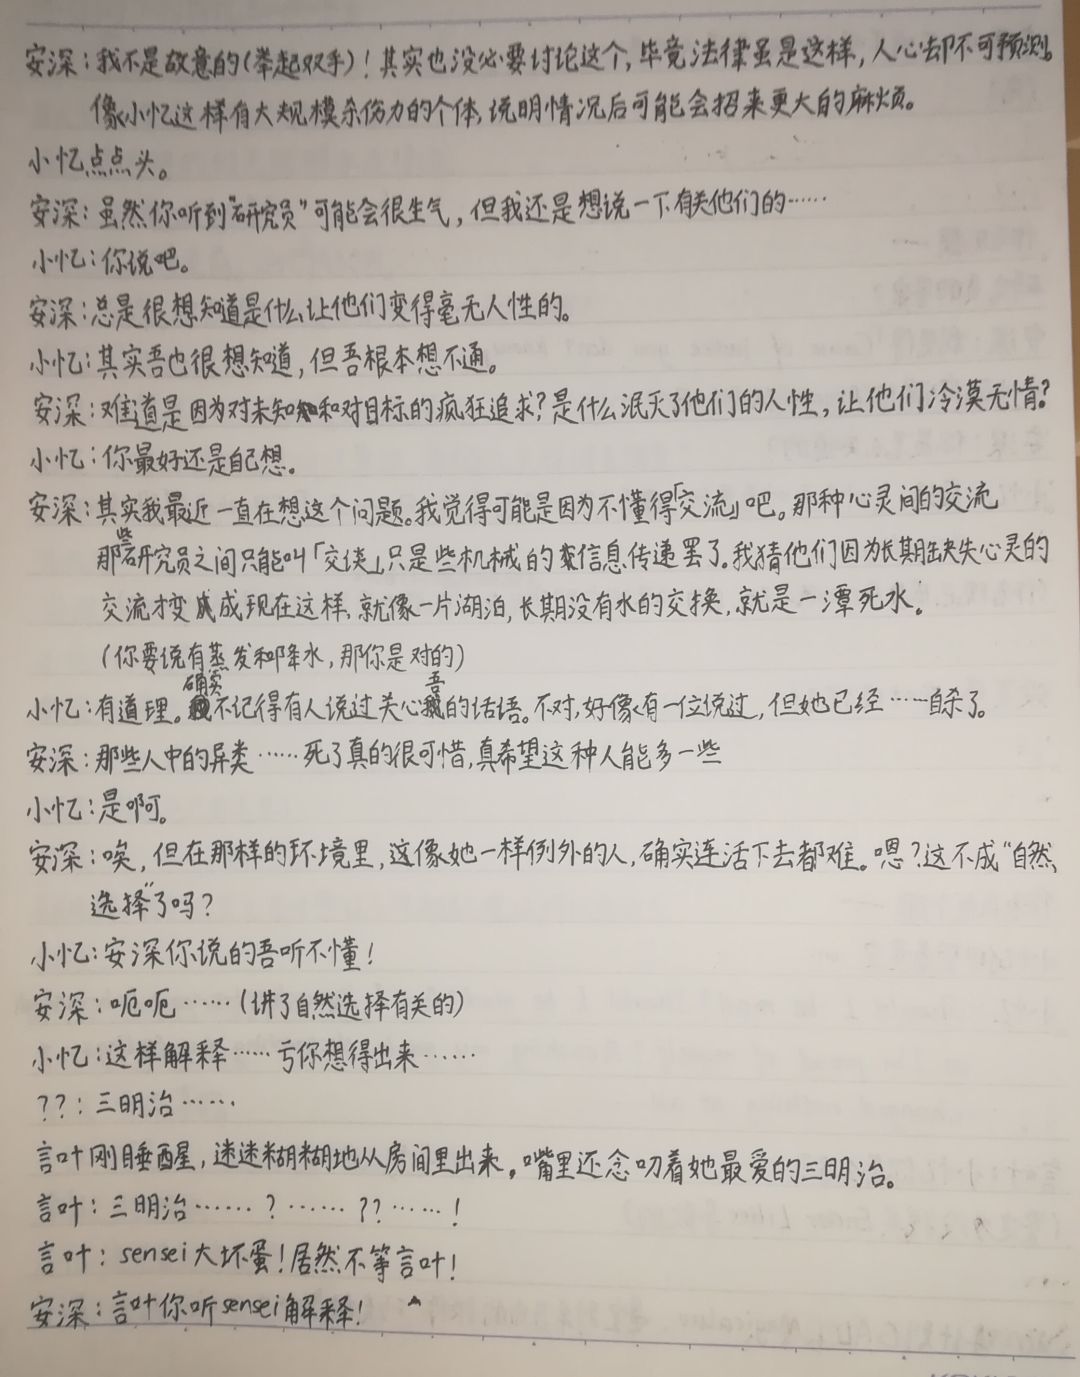 安深:我不是故意的(举起双手)!其实也没必要讨论这个,毕竟法律虽是这样,人心却不可预测。
像小忆这样有大规模杀伤力的个体,说明情况后可能会招来更大的麻烦。
小忆点点头。
安深:虽然你听到“研究员”可能会很生气,但我还是想说一下有关他们的……
小忆:你说吧。
安深:总是很想知道是什么让他们变得毫无人性的。
小忆:其实吾也很想知道,但吾根本想不通。
安深:难道是因为对未知和对目标的疯狂追求?是什么泯灭了他们的人性,让他们冷漠无情?
小忆:你最好还是自己想。
安深:其实我最近一直在想这个问题。我觉得可能是因为不懂得「交流」吧。那种心灵间的交流
那些研究员之间只能叫「交谈」,只是些机械的信息传递罢了。我猜他们因为长期缺失心灵的
交流才变成现在这样,就像一片湖泊,长期没有水的交换,就是一潭死水。
(你要说有蒸发和降水,那你是对的)
小忆:有道理。确实不记得有人说过关心吾的话语。不对,好像有一位说过,但她已经……自杀了。
安深:那些人中的异类……死了真的很可惜,真希望这种人能多一些
小忆:是啊。
安深:唉,但在那样的环境里,这像她一样例外的人,确实连活下去都难。嗯?这不成“自然
选择”了吗?
小忆:安深你说的吾听不懂!
安深:呃呃……(讲了自然选择有关的)
小忆:这样解释……亏你想得出来……
??:三明治……
言叶刚睡醒,迷迷糊糊地从房间里出来。嘴里还念叨着她最爱的三明治。
言叶:三明治……?……??……!
言叶:sensei大坏蛋!居然不等言叶!
安深:言叶你听sensei解释!